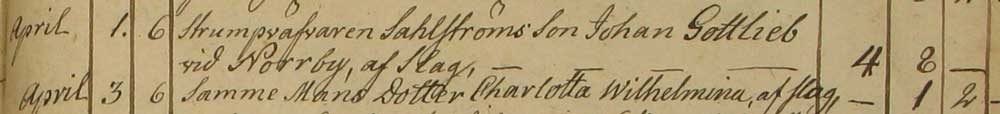 April 1. 6 Strumpväfvaren Sahlströms Son Johan Gottlieb
vid Norrby, af Slag, — — — — 4 8 —
April 3 6 Samme Mans Dotter Charlotta Wilhelmina, af slag, — 1 2 -